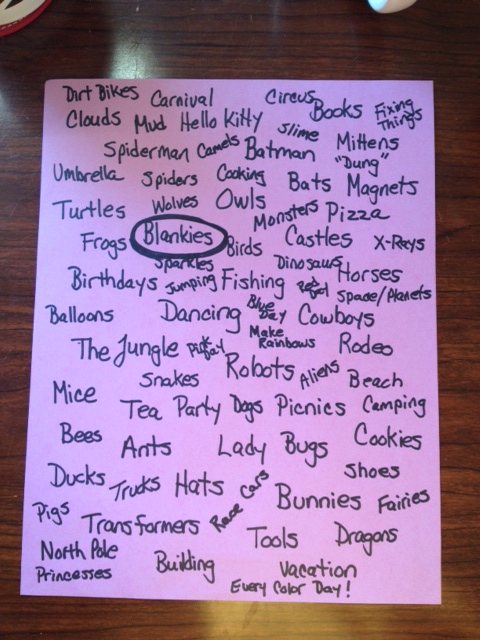 Dirt Bikes Carnival Circus Books Fixing Things
Clouds Mud Hello Kitty Slime Mittens
Spiderman Camels Batman "Dung"
Umbrella Spiders Cooking Bats Magnets
Turtles Wolves Owls Monsters Pizza
Frogs Blankies Birds Castles X-Rays
Sparkles Dinosaurs
Birthdays Jumping Fishing Red Horses Space/Planets
Balloons Dancing Blue Day Cowboys
The Jungle Make Rainbows Rodeo
Snakes Robots Aliens Beach
Mice Tea Party Dogs Picnics Camping
Bees Ants Lady Bugs Cookies
Ducks Trucks Hats Cars Shoes
Pigs Transformers Race Bunnies Fairies
North Pole Tools Dragons
Princesses Building Vacation
Every Color Day!